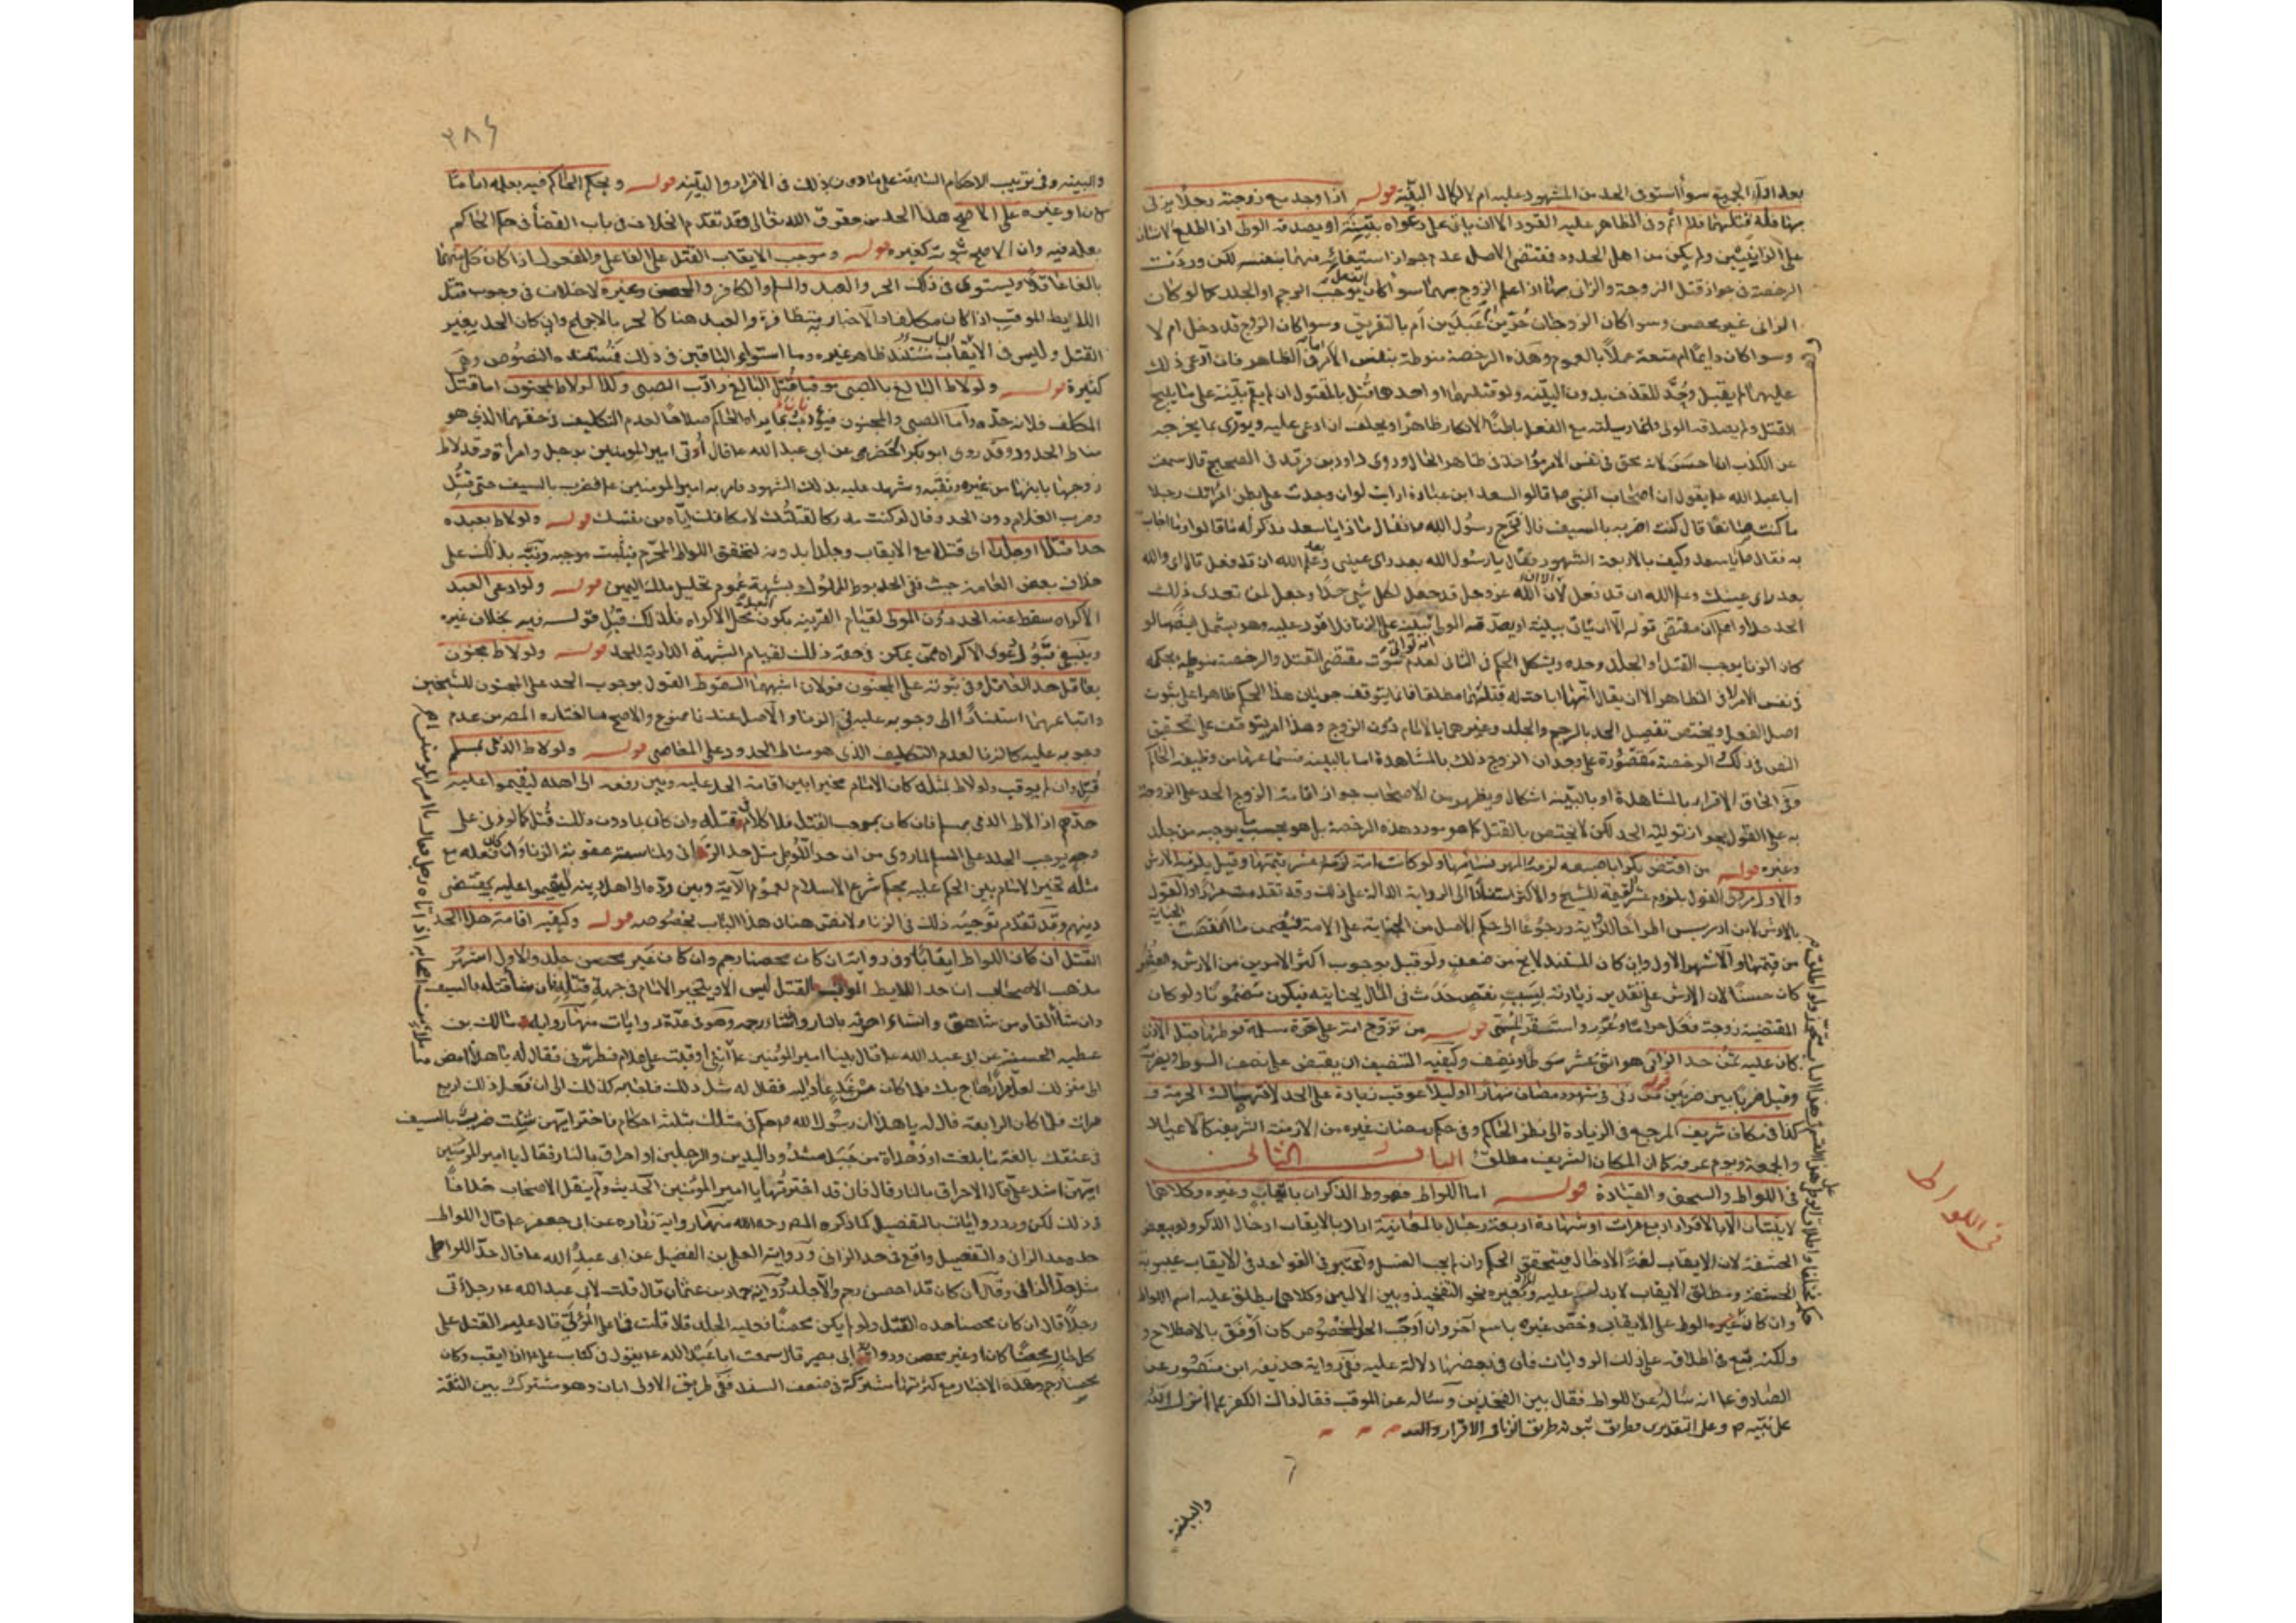 بعد اداء الجميع سواء استوفى الحد من المشهود عليه ام لا لاكمال البينة قوله اذا وجد مع زوجته رجلا يزنى
بها فله قتلهما فلا اثم وفى الظاهر عليه القود الا ان يأتى على دعواه ببينة او يصدقه الولى اذا اطلع الانسان
على الزانيين ولم يكن من اهل الحدود فمقتضى الاصل عدم جواز استيفائه منهما بنفسه لكن وردت
الرخصة فى جواز قتل الزوجة والزانى بها اذا علم الزوج بهما سواء كان الفعل يوجب الرجم او الجلد كما لو كان
الزانى غير محصن وسواء كان الزوجان حرين ام عبدين ام بالتفريق وسواء كان الزوج قد دخل ام لا
وسواء كان دائما ام متعة عملا بالعموم وهذه الرخصة منوطة بنفس الامر اما فى الظاهر فان ادعى ذلك
عليهما لم يقبل وحد للقذف بدون البينة ولو قتلهما او احدهما قتل بالمقتول ان لم يقم بينة على ما يبيح
القتل ولم يصدقه الولى وانما وسيلته مع الفعل باطنا الانكار ظاهرا ويحلف ان ادعى عليه ويورى بما يخرجه
عن الكذب ان احسن لانه محق فى نفس الامر مؤاخذ فى ظاهر الحال وروى داود بن فرقد فى الصحيح قال سمعت
ابا عبد الله ع يقول ان اصحاب النبى ص قالوا لسعد ابن عبادة ارايت لو وجدت على بطن امراتك رجلا
ما كنت صانعا قال كنت اضربه بالسيف قال فخرج رسول الله ص فقال ماذا يا سعد فذكر له ما قالوا وما اجاب
به فقال ص يا سعد وكيف بالاربعة الشهود فقال يا رسول الله بعد راى عينى وعلم الله ان قد فعل قال اى والله
بعد راى عينك وعلم الله ان قد فعل لان الله عز وجل قد جعل لكل شئ حدا وجعل لمن تعدى ذلك
الحد حدا واعلم ان مقتضى قوله الا ان ياتى ببينة او يصدقه الولى
كان الزنا يوجب القتل او الجلد وحده ويشكل الحكم فى الثانى لعدم ثبوت مقتضى القتل والرخصة منوطة بحكمه
فى نفس الامر لا فى الظاهر الا ان يقال ان اباحته له قتلهما مطلقا فانما يتوقف جريان هذا الحكم ظاهرا على ثبوت
اصل الفعل ويختص تفصيل الحد بالرجم والجلد وغيرهما بالامام دون الزوج وهذا امر يتوقف على تحقيق
النص فى ذلك الرخصة مقصورة على وجدان الزوج ذلك بالمشاهدة اما بالبينة فسماعها من وظيفة الحاكم
وفى الحاق الاقرار بالمشاهدة او بالبينة اشكال ويظهر من الاصحاب جواز اقامة الزوج الحد على الزوجة
به على القول بجواز توليته الحد لكن لا يختص بالقتل كما هو مورد هذه الرخصة بل هو بحسب ما يوجبه من جلد
وغيره قوله من افتض بكرا باصبعه لزمه المهر نسائها ولو كانت امة لزمه عشر قيمتها وقيل يلزمه الارش
والاول مروى القول بلزوم عشر القيمة للشيخ والاكثر استنادا الى الرواية الدالة على ذلك وقد تقدمت مرارا والقول
بالارش لابن ادريس اطراحا للرواية ورجوعا الى حكم الاصل من الجناية على الامة فيضمن ما انقصت الجناية
من قيمتها والاشهر الاول وان كان المستند لا يخ من ضعف ولو قيل بوجوب اكثر الامرين من الارش والعشر
كان حسنا لان الارش على تقدير زيادته بسبب نقص حدث فى المال بجنايته فيكون مضمونا ولو كان
المقتضية زوجة فعل حراما وعزر واستقر المسمى قوله من تزوج امة على حرة مسلمة فوطئها قبل الاذن
كان عليه ثمن حد الزانى هو اثنى عشر سوطا ونصف وكيفية التنصيف ان يقبض على نصف السوط ويضربه
وقيل ضربا بين ضربين قوله من زنى فى شهر رمضان نهارا او ليلا عوقب زيادة على الحد لانتهاك الحرمة و
كذا فى مكان شريف المرجع فى الزيادة الى نظر الحاكم وفى حكم رمضان غيره من الازمنة الشريفة كالاعياد
والجمعة ويوم عرفة كما ان المكان الشريف مطلق الباب الثانى
فى اللواط والسحق والقيادة قوله اما اللواط فهو وطؤ الذكران بايقاب وغيره وكلاهما
لا يثبتان الا بالاقرار اربع مرات او شهادة اربعة رجال بالمعاينة اراد بالايقاب ادخال الذكر ولو ببعض
الحشفة لان الايقاب لغة الادخال فيتحقق الحكم وان لم يجب الغسل واعتبر فى القواعد فى الايقاب غيبوبة
الحشفة ومطلق الايقاب لا يدل عليه وبغيره نحو التفخيذ وبين الاليين وكلاهما يطلق عليه اسم اللواط
وان كان غيره الوطء على الايقاب وخص غيره باسم آخر وان اوجب الحد المخصوص كان اوفق بالاصطلاح و
ولكنه تبع فى اطلاقه على ذلك الروايات فان فى بعضها دلالة عليه ففى رواية حذيفة ابن منصور عن
الصادق ع انه ساله عن اللواط فقال بين الفخذين وساله عن الموقب فقال ذاك الكفر بما انزل الله
على نبيه ص وعلى التقديرين فطريق ثبوته طريق الزنا فى الاقرار والعدد
والبينة
فى اللواط
٣٨٤
والبينة وفى ترتيب الاحكام السابقة على ما دون ذلك فى الاقرار والبينة قوله ويحكم الحاكم فيه بعلمه اماما
كان او غيره على الاصح هذا الحد من حقوق الله تعالى وقد تقدم الخلاف فى باب القضاء فى حكم الحاكم
بعلمه فيه وان الاصح ثبوته كغيره قوله وموجب الايقاب القتل على الفاعل والمفعول اذا كان كل منهما
بالغا عاقلا ويستوى فى ذلك الحر والعبد والمسلم والكافر والمحصن وغيره لا خلاف فى وجوب قتل
اللائط الموقب اذا كان مكلفا والاخبار به متظافرة والعبد هنا كالحر بالاجماع وان كان الحد بغير
القتل وليس فى الباب مستند ظاهر غيره وما استواء الباقين فى ذلك فمستنده النصوص وهى
كثيرة قوله ولو لاط البالغ بالصبى موقبا قتل البالغ وادب الصبى وكذا لو لاط بمجنون اما قتل
المكلف فلانه حده واما الصبى والمجنون فيؤدبان بما يراه الحاكم صلاحا لعدم التكليف فى حقهما الذى هو
مناط الحدود وقد روى ابو بكر الحضرمى عن ابى عبد الله ع قال اوتى امير المؤمنين برجل وامراة وقد لاط
زوجها بابنها من غيره وثقبه وشهد عليه بذلك الشهود فامر به امير المؤمنين ع فضرب بالسيف حتى قتل
وضرب الغلام دون الحد وقال لو كنت مدركا لقتلتك لامكانك اياه من نفسك قوله ولو لاط بعبده
حدا قتلا او جلدا اى قتلا مع الايقاب وجلدا بدونه لتحقق اللواط المحرم فيثبت موجبه ونبه بذلك على
خلاف بعض العامة حيث نفى الحد بوطء المملوك بشبهة عموم تحليل ملك اليمين قوله ولو ادعى العبد
الاكراه سقط عنه الحد دون المولى لقيام القرينة بكون العبد محل الاكراه فلذلك قبل قوله فيه بخلاف غيره
وينبغى قبول دعوى الاكراه ممن يمكن فى حقه ذلك لقيام الشبهة الدارئة للحد قوله ولو لاط مجنون
بعاقل حد العاقل وفى ثبوته على المجنون قولان اشبههما السقوط القول بوجوب الحد على المجنون للشيخين
واتباعهما استنادا الى وجوبه عليه فى الزنا والاصل عندنا ممنوع والاصح ما اختاره المصر من عدم
وجوبه عليه كالزنا لعدم التكليف الذى هو مناط الحدود على المعاصى قوله ولو لاط الذمى بمسلم
قتل وان لم يوقب ولو لاط بمثله كان الامام مخيرا بين اقامة الحد عليه وبين رفعه الى اهله ليقيموا عليه
حدهم اذا لاط الذمى بمسلم فان كان بموجب القتل فلا كلام فى قتله وان كان بما دون ذلك قتل كما لو زنى على
مثله تخير الامام بين الحكم عليه بحكم شرع الاسلام لعموم الآية وبين رده الى اهل دينه ليقيموا عليه بمقتضى
دينهم وقد تقدم توجيه ذلك فى الزنا ولا نص هنا فى هذا الباب بخصوصه قوله وكيفية اقامة هذا الحد
القتل ان كان اللواط ايقابا وفى رواية ان كان محصنا رجم وان كان غير محصن جلد والاول اشهر
مذهب الاصحاب ان حد اللائط الموقب القتل ليس الا ويتخير الامام فى جهة قتله فان شاء قتله بالسيف
وان شاء القاه من شاهق وان شاء احرقه بالنار وان شاء رجمه وهو فى عدة روايات منها رواية مالك بن
عطيه الحسنة عن ابى عبد الله ع قال بينا امير المؤمنين ع انى اوقبت على غلام فطهرنى فقال له يا هذا امض
الى منزلك لعل مرارا هاج بك فلما كان من غد عاد اليه فقال له مثل ذلك فاجابه كذلك الى ان فعل ذلك اربع
مرات فلما كان الرابعة قال له يا هذا ان رسول الله ص حكم فى مثلك بثلثة احكام فاختر ايهن شئت ضربة بالسيف
فى عنقك بالغة ما بلغت او دهداة من جبل مشدود اليدين والرجلين او احراق بالنار فقال يا امير المؤمنين
ايهن اشد على قال الاحراق بالنار قال فان قد اخترتها يا امير المؤمنين الحديث ولم ينقل الاصحاب خلافا
فى ذلك لكن ورد روايات بالتفصيل كما ذكره المصر رحمه الله منها رواية زراره عن ابى جعفر ع قال اللواط
حده حد الزانى والتفصيل واقع فى حد الزانى ورواية العلاء بن الفضيل عن ابى عبد الله ع قال حد اللوطى
مثل حد الزانى وقال ان كان قد احصن رجم والا جلد ورواية حماد بن عثمان قال قلت لابى عبد الله ع رجل اتى
رجلا قال ان كان محصنا فعليه القتل ولو لم يكن محصنا فعليه الجلد قلت فما على المؤتى قال عليه القتل على
كل حال محصنا كان او غير محصن ورواية ابى بصير قال سمعت ابا عبد الله ع يقول فى كتاب على ع اذا ايقب وكان
محصنا رجم وهذه الاخبار مع كثرتها مشتركة فى ضعف السند ففى طريق الاولى ابان وهو مشترك بين الثقة